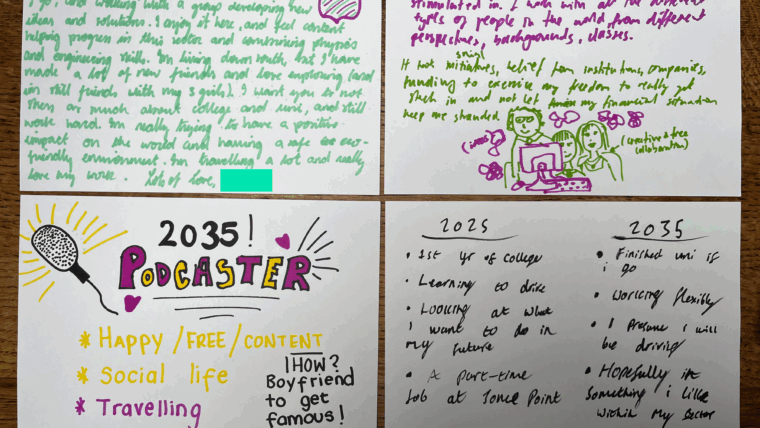 I go. and working with a group developing new
ideas and solutions. I enjoy it here, and feel content
helping progress in this sector and combining physics
and engineering skills. Im living down south, but I have
made a lot of new friends and love exploring (and
im still friends with my 3 girls). I want you to not
stress as much about college and uni, and still
work hard. Im really trying to have a positive
impact on the world and having a safe to eco-
friendly environment. Im travelling a lot and really
love my work. Lots of love,
stimulated in. I work with all the different
types of people in the world, from different
perspectives, backgrounds, classes.
social
It took initiatives, belief from institutions, companies,
funding to exercise my freedom to really get
stuck in and not let my financial situation
keep me stranded.
(ideas)
(creative & free
collaboration)
2035!
PODCASTER
* HAPPY/FREE/CONTENT
* Social life
* Travelling
HOW?
Boyfriend
to get
famous!
2025
• 1st yr of college
• Learning to drive
• Looking at what
I want to do in
my future
• A part-time
Job at Point
2035
• Finished uni if
i go
• Working flexibly
• I presume I will
be driving
• Hopefully in
something i like
within my sector